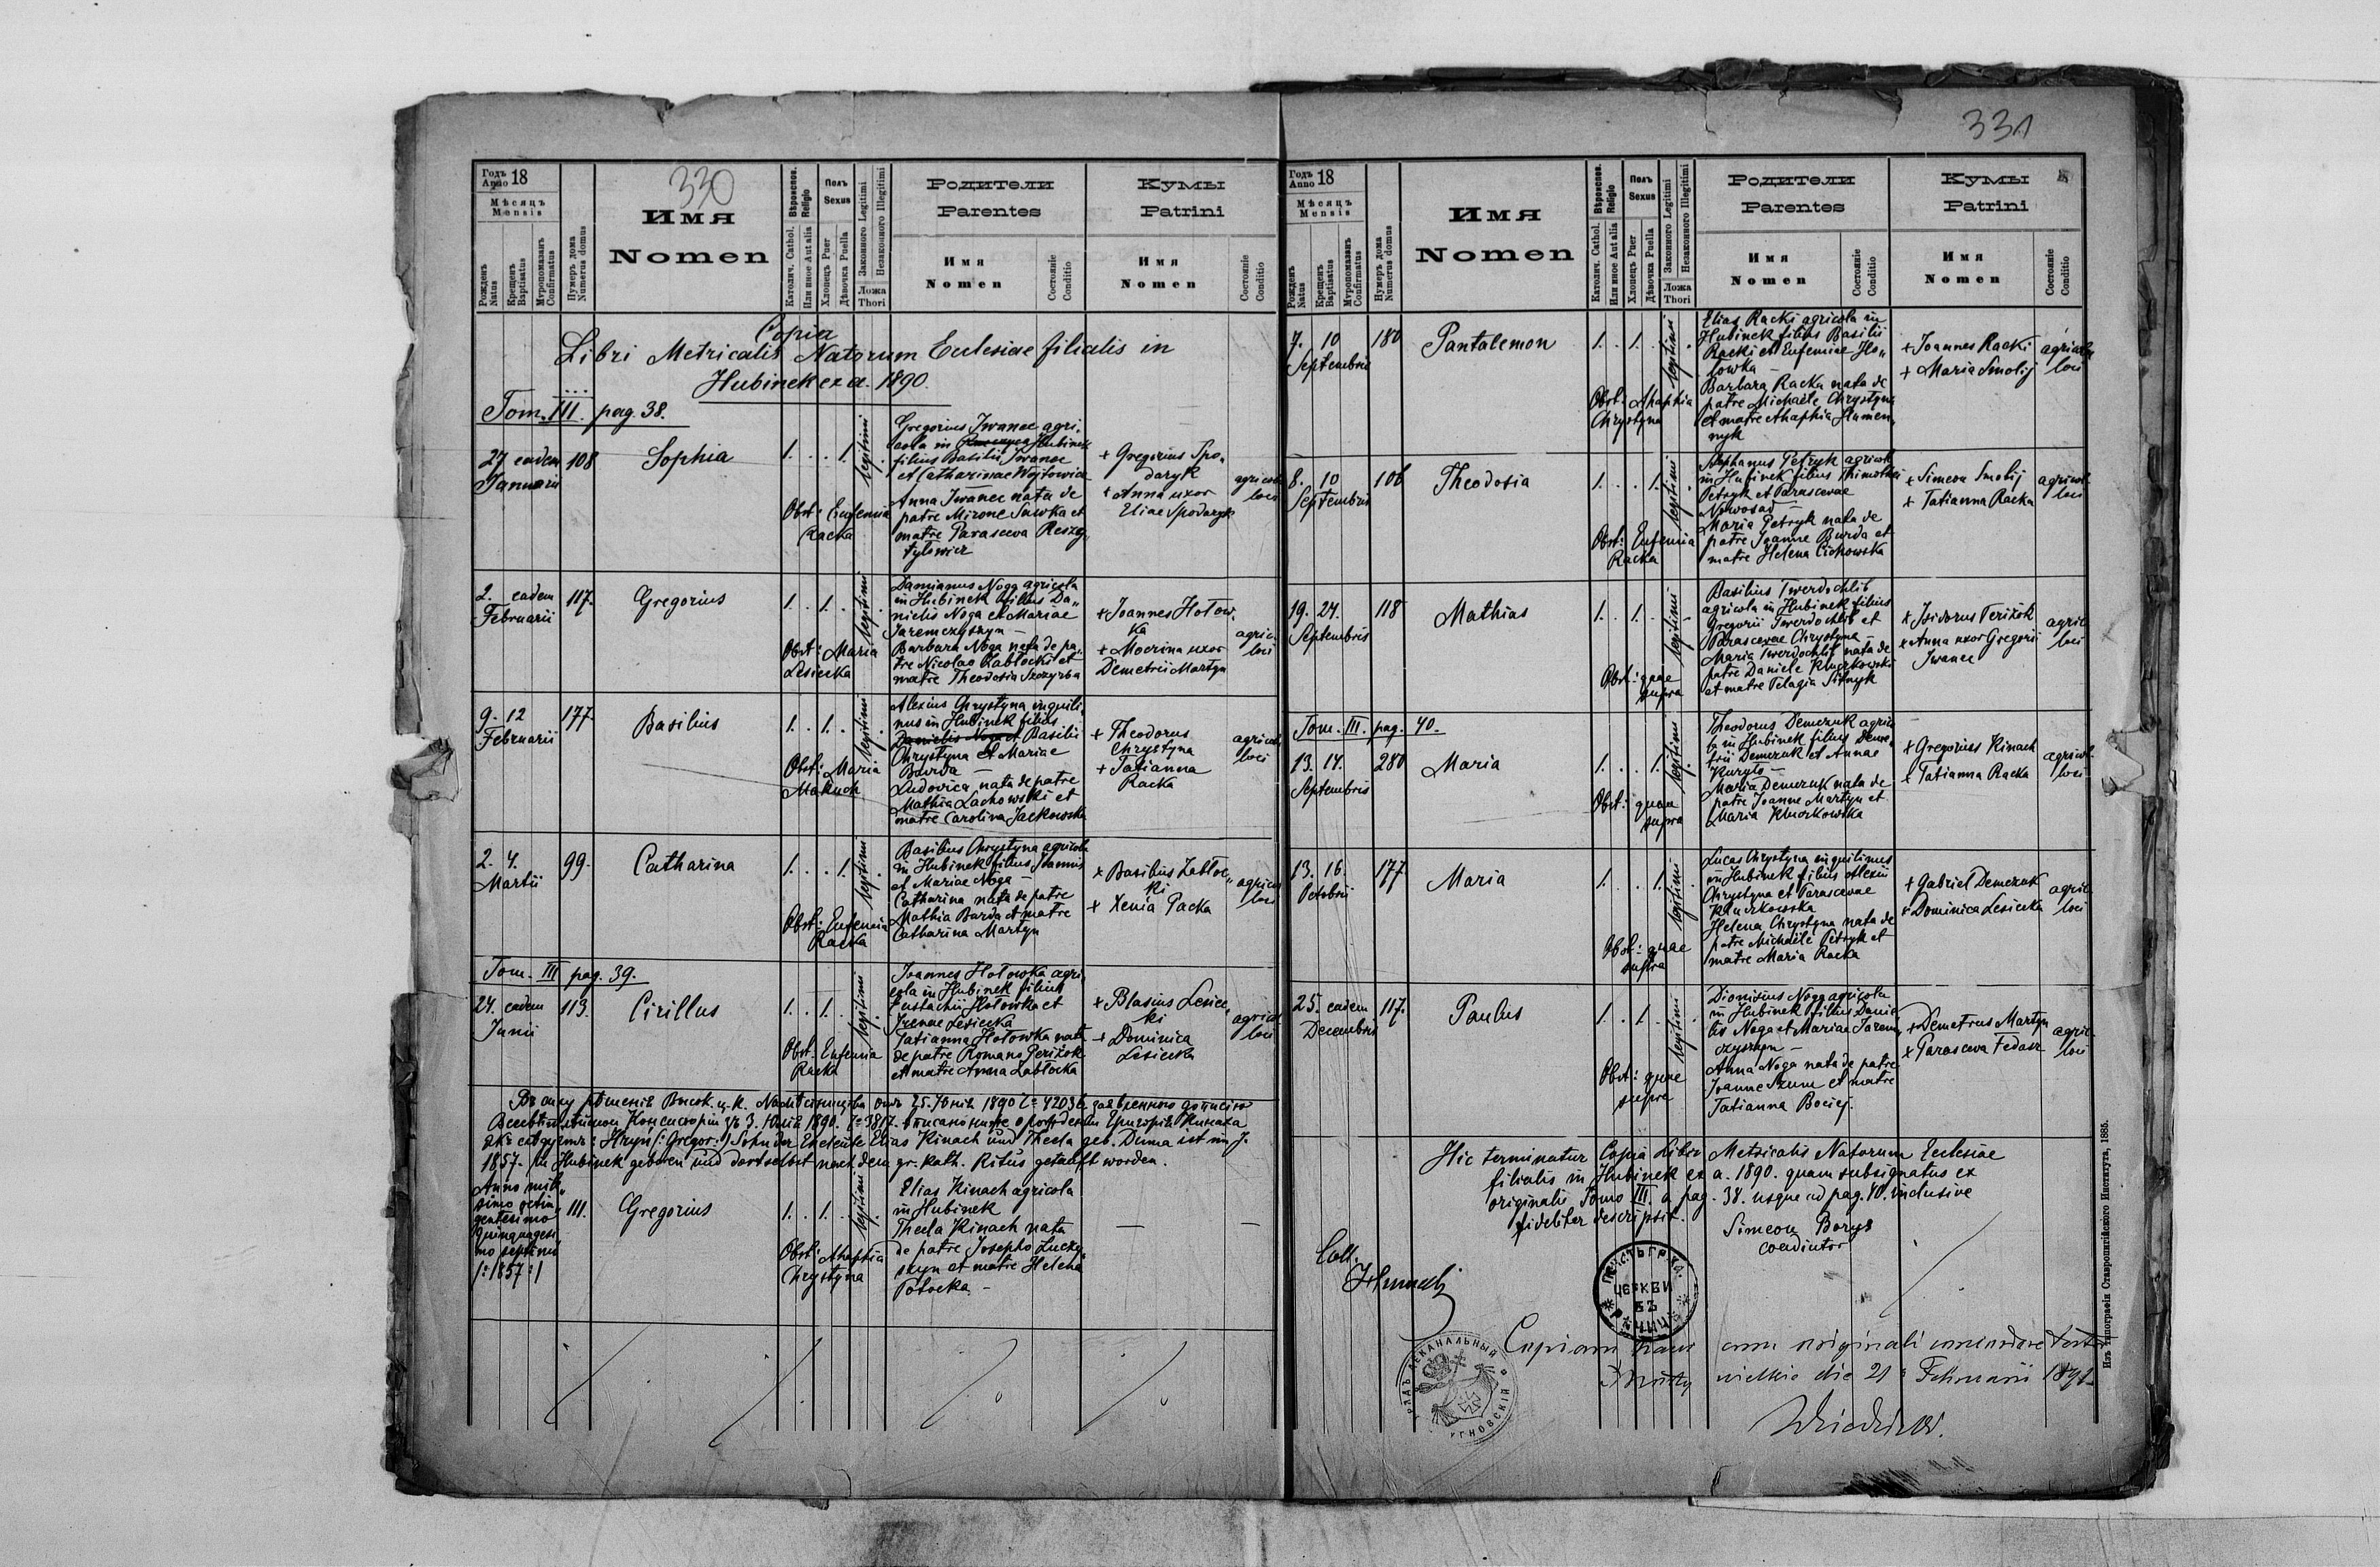 330
Годъ Anno 18
Мѣсяцъ Mensis
Рожденъ Natus
Крещенъ Baptisatus
Мѵропомазанъ Confirmatus
Нумеръ дома Numerus domus
Имя
Nomen
Вѣроиспов. Religio
Католич. Cathol.
Или иное Aut alia
Полъ Sexus
Хлопецъ Puer
Дѣвочка Puella
Законного Legitimi
Незаконного Illegitimi
Ложа Thori
Родители
Parentes
Имя Nomen
Состоянiе Conditio
Кумы
Patrini
Имя Nomen
Состоянiе Conditio
Copia
Libri Metricalis Natorum Ecclesiae filialis in
Hubinek ex a. 1890.
Tom. III. pag. 38.
27 eadem
Januarii
108
Sophia
1. . . 1.
legitimi
Obst: Eufemia
Racka
Gregorius Iwanec agri-
cola in Hubinek
filius Basilii Iwanec
et Catharinae Wojtowicz
Anna Iwanec nata de
patre Mirone Sawka et
matre Parasceva Reszy-
tylowicz
+ Gregorius Spo-
daryk
+ Anna uxor
Eliae Spodaryk
agricolae
loci
2. eadem
Februarii
117.
Gregorius
1. . 1. .
legitimi
Obst: Maria
Lesiecka
Damianus Noga agricola
in Hubinek filius Da-
nielis Noga et Mariae
Jaremczyszyn –
Barbara Noga nata de pa-
tre Nicolao Zabłocki et
matre Theodosia Szczyrba
+ Joannes Hołow-
ka
+ Mocrina uxor
Demetrii Martyn
agric.
loci
9. 12
Februarii
177
Basilius
1. . 1. .
legitimi
Obst: Maria
Makuch
Alexius Chrystyna inquili-
nus in Hubinek filius
Danielis Noga et Basilii
Chrystyna et Mariae
Burda –
Ludovica nata de patre
Mathia Lachowski et
matre Carolina Jackowska
+ Theodorus
Chrystyna
+ Tatianna
Racka
agricol.
loci
2. 4.
Martii
99.
Catharina
1. . . 1.
legitimi
Obst: Eufemia
Racka
Basilius Chrystyna agricola
in Hubinek filius Joannis
et Mariae Noga –
Catharina nata de patre
Mathia Burda et matre
Catharina Martyn
+ Basilius Zabłoc-
ki
+ Xenia Packa
agricol
loci
Tom. III pag. 39.
24. eadem
Junii
113.
Cirillus
1. . 1. .
legitimi
Obst. Eufemia
Racka
Joannes Hołowka agri-
cola in Hubinek filius
Eustachii Hołowka et
Irenae Lesiecka
Tatianna Hołowka nata
de patre Romano Periżok
et matre Anna Zabłocka
+ Blasius Lesiec-
ki
+ Dominica
Lesiecka
agricol
loci
25. Юнія 1890 L= 42036
Консисторіи 1890. L=3817.
Hryń /: Gregor:/ Sohn der Eheleute Elias Kinach und Thecla geb. Duma ist im J.
1857. in Hubinek geboren und dortselbst nach dem gr. kath. Ritus getauft worden.
Anno mill-
simo octin-
gentesimo
quinquagesi-
mo septimo
/: 1857:/
111.
Gregorius
1. . 1. .
legitimi
Obst: Ahaphia
Chrystyna
Elias Kinach agricola
in Hubinek
Thecla Kinach nata
de patre Josepho Łuczy-
szyn et matre Helena
Potocka –
331
Годъ Anno 18
Мѣсяцъ Mensis
Рожденъ Natus
Крещенъ Baptisatus
Мѵропомазанъ Confirmatus
Нумеръ дома Numerus domus
Имя
Nomen
Вѣроиспов. Religio
Католич. Cathol.
Или иное Aut alia
Полъ Sexus
Хлопецъ Puer
Дѣвочка Puella
Законного Legitimi
Незаконного Illegitimi
Ложа Thori
Родители
Parentes
Имя Nomen
Состоянiе Conditio
Кумы
Patrini
Имя Nomen
Состоянiе Conditio
7. 10
Septembris
180
Pantalemon
1. . 1. .
legitimi
Obst: Ahaphia
Chrystyna
Elias Racki agricola in
Hubinek filius Basilii
Racki et Eufemiae Ho-
łowka –
Barbara Racka nata de
patre Michaele Chrystyna
et matre Ahaphia Humen-
nyk
+ Joannes Racki
+ Maria Smolij
agricolae
loci
8. 10
Septembris
106
Theodosia
1. . . 1.
legitimi
Obst: Eufemia
Racka
Stephanus Petryk agricola
in Hubinek filius Thimothei
Petryk et Parascevae
Nowosad –
Maria Petryk nata de
patre Joanne Burda et
matre Helena Cichowska
+ Simeon Smolij
+ Tatianna Racka
agricol.
loci
19. 24.
Septembris
118
Mathias
1. . 1. .
legitimi
Obst: quae
supra
Basilius Twerdochlib
agricola in Hubinek filius
Gregorii Twerdochlib et
Parascevae Chrystyna –
Maria Twerdochlib nata de
patre Daniele Kluczkowski
et matre Pelagia Sitnyk
+ Isidorus Periżok
+ Anna uxor Gregorii
Iwanec
agric.
loci
Tom. III. pag. 40.
13. 14.
Septembris
280
Maria
1. . . 1.
legitimi
Obst: quae
supra
Theodorus Demczuk agrico-
la in Hubinek filius Deme-
trii Demczuk et Annae
Kuryło –
Maria Demczuk nata de
patre Joanne Martyn et
Maria Kluczkowska
+ Gregorius Kinach
+ Tatianna Racka
agricol.
loci
13. 16.
Octobrii
177
Maria
1. . . 1.
legitimi
Obst: quae
supra
Lucas Chrystyna inquilinus
in Hubinek filius Alexii
Chrystyna et Parascevae
Kluczkowska
Helena Chrystyna nata de
patre Michaele Petryk et
matre Maria Racka
+ Gabriel Demczuk
+ Dominica Lesiecka
agric.
loci
25. eadem
Decembris
117.
Paulus
1. . 1. .
legitimi
Obst: quae
supra
Dionisius Noga agricola
in Hubinek filius Danie-
lis Noga et Mariae Jarem-
czyszyn –
Anna Noga nata de patre
Joanne Szum et matre
Tatianna Bociej.
+ Demetrus Martyn
+ Parasceva Fedasz
agric.
loci
Hic terminatur Copia Libri Metricalis Natorum Ecclesiae
filialis in Hubinek ex a. 1890. quam subsignatus ex
originalis Tomo III. a pag. 38. usque ad pag. 40. inclusive
fideliter descripsit.
Simeon Borys
coadiutor
Coll.
ЦЕРКВИ
ВЪ
Copiam hanc cum originali
die 21 Februarii 1891
Изъ типографiи Ставропигiйского Института, 1885.